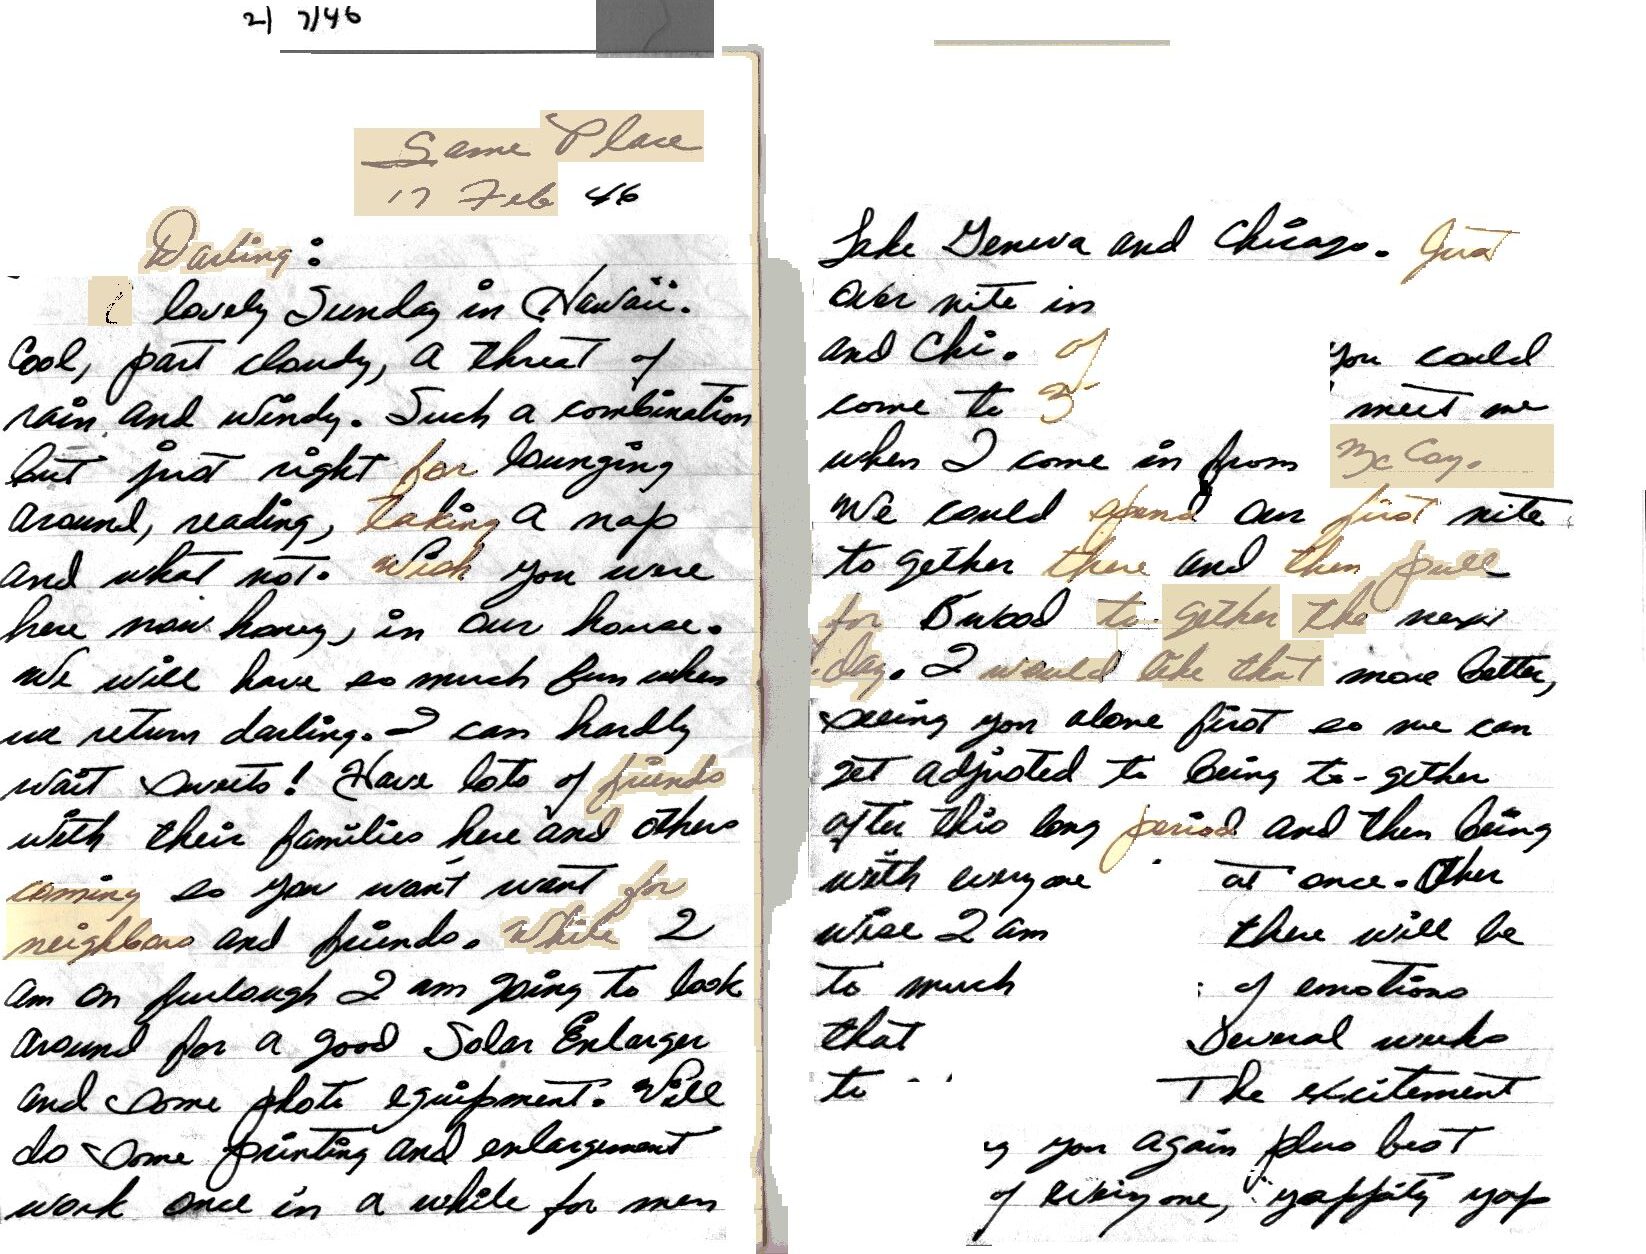 2/ 7/46
Same Place
17 Feb 46
Darling:
lovely Sunday in Hawaii.
Cool, part cloudy, a threat of
rain and windy. Such a combination
but just right for lounging
around, reading, taking a nap
and what not. Wish you were
here now honey, in our house.
We will have so much fun when
we return darling. I can hardly
wait sweets! Have lots of friends
with their families here and others
coming so you won't want for
neighbors and friends. While I
am on furlough I am going to look
around for a good Solar Enlarger
and some photo equipment. Will
do some printing and enlargement
work once in a while for men
Lake Geneva and Chicago. Just
over nite in
and Chi. If you could
come to meet me
when I come in from McCoy.
We could spend our first nite
to gether there and then pull
for Bwood to-gether the next
day. I would like that more better,
seeing you alone first so we can
get adjusted to being to-gether
after this long period and then being
with everyone at once. Other
wise I am there will be
to much of emotions
that several weeks
to The excitement
you again plus best
of everyone, yappity yap